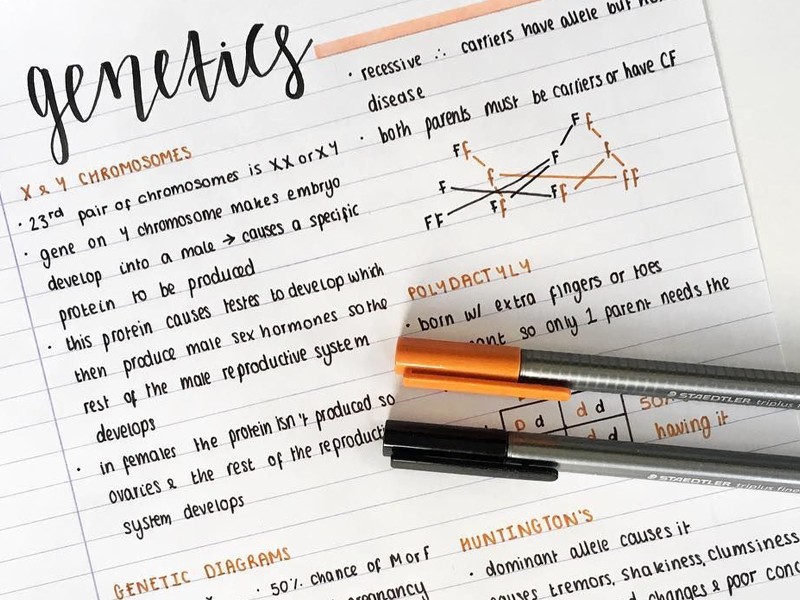 genetics
X & Y CHROMOSOMES
• 23rd pair of chromosomes is XX or XY
• gene on Y chromosome makes embryo
develop into a male → causes a specific
protein to be produced
• this protein causes testes to develop which
then produce male sex hormones so the
rest of the male reproductive system
develops
• in females the protein isn't produced so
ovaries & the rest of the reproducti
system develops
GENETIC DIAGRAMS
• 50% chance of M or F
• recessive ∴ carriers have allele but
disease
• both parents must be carriers or have CF
F f
F f
F f
f
F
f
F
F f
F f
f f
F F
POLYDACTYLY
• born w/ extra fingers or toes
so only 1 parent needs the
D d
d d
50%
d d
having it
HUNTINGTON'S
• dominant allele causes it
tremors, shakiness, clumsiness
changes & poor conc
STAEDTLER triplus
STAEDTLER triplus fine